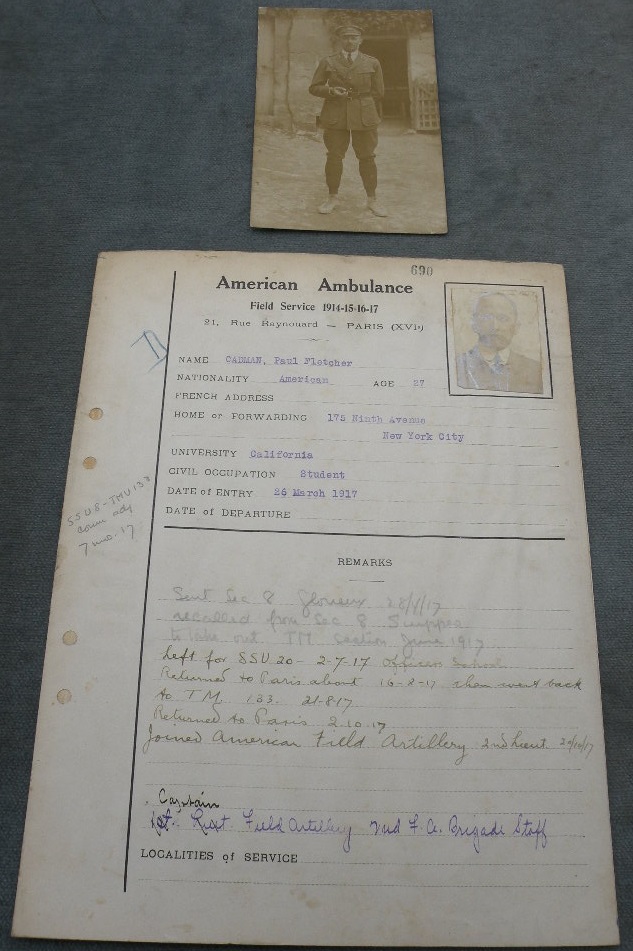 690
American Ambulance
Field Service 1914-15-16-17
21, Rue Raynouard — PARIS (XVIe)
D
NAME CADMAN, Paul Fletcher
NATIONALITY American AGE 27
FRENCH ADDRESS
HOME or FORWARDING 175 Ninth Avenue
New York City
UNIVERSITY California
CIVIL OCCUPATION Student
DATE of ENTRY 26 March 1917
DATE of DEPARTURE
SSU 8 - TMU 133
7 mo. 17
REMARKS
Sent Sec 8 28/4/17
recalled from Sec 8 Suippes
to take out TM section June 1917
left for SSU 20 - 2-7-17 Officers School
Returned to Paris about 16-8-17 then went back
to T.M. 133. 21-8-17
Returned to Paris 2.10.17
Joined American Field Artillery 2nd Lieut. 20/10/17
Captain
1st. Regt Field Artillery 2nd F.A. Brigade Staff
LOCALITIES of SERVICE